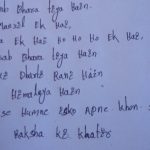 sab Dhara Teya Hain.
Manzil Ek Hai,
Ek Hai Ho Ho Ho Ek Hai,
sab Dhara Teya Hain
Dharte Rahe Hain
Himalaya Hain
se Humne isko Apne khon.
Raksha ke khater